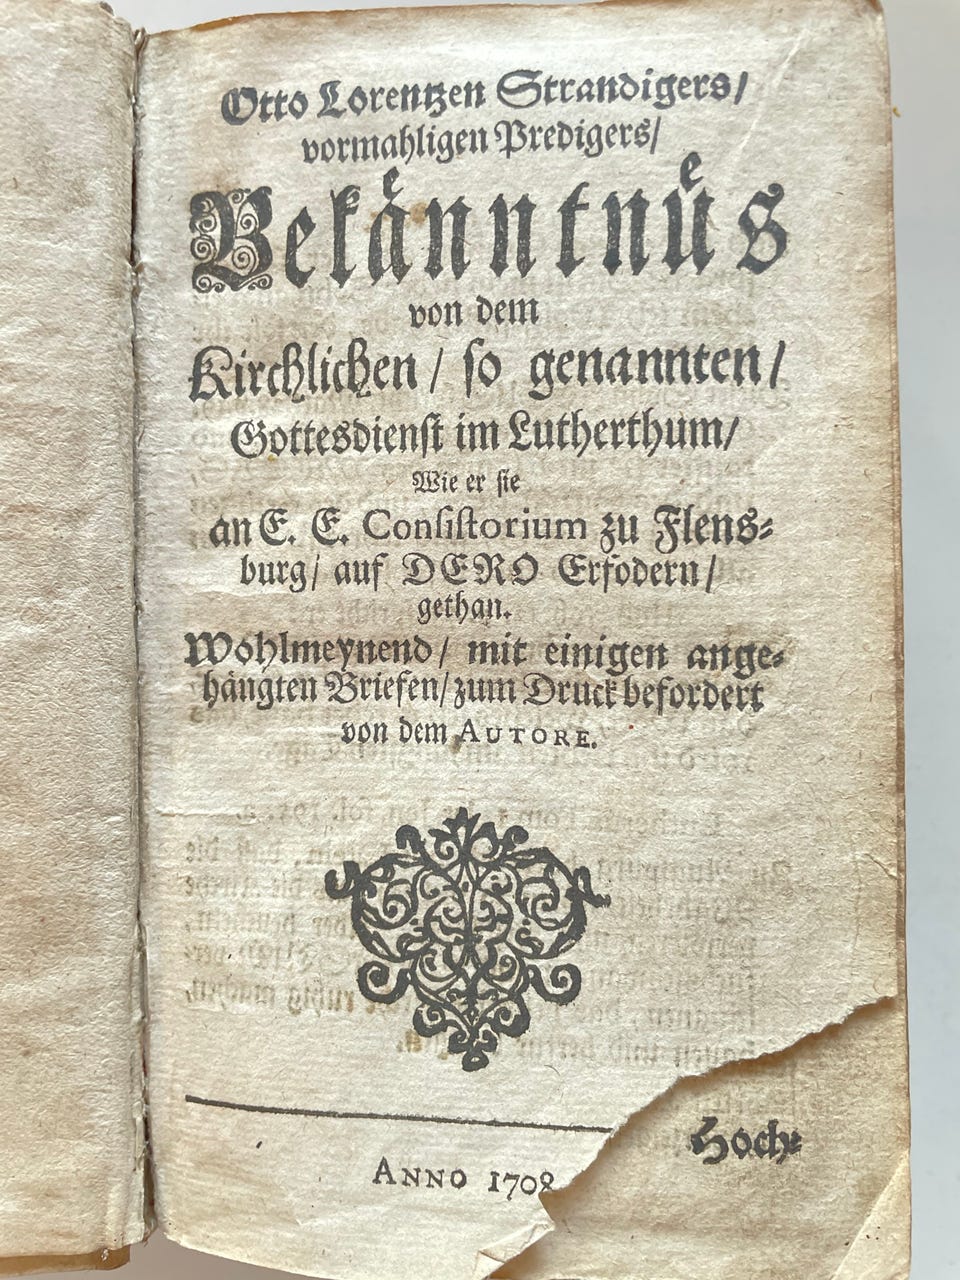 Otto Lorentzen Strandigers/
vormahligen Predigers/
Bekäntnüs
von dem
Kirchlichen / so genannten /
Gottesdienst im Lutherthum/
Wie er sie
an E. E. Consistorium zu Flens-
burg/ auf DERO Erfodern/
gethan.
Wohlmeynend/ mit einigen ange-
hängten Briefen/ zum Druck befordert
von dem AUTORE.
ANNO 1708
Hoch-